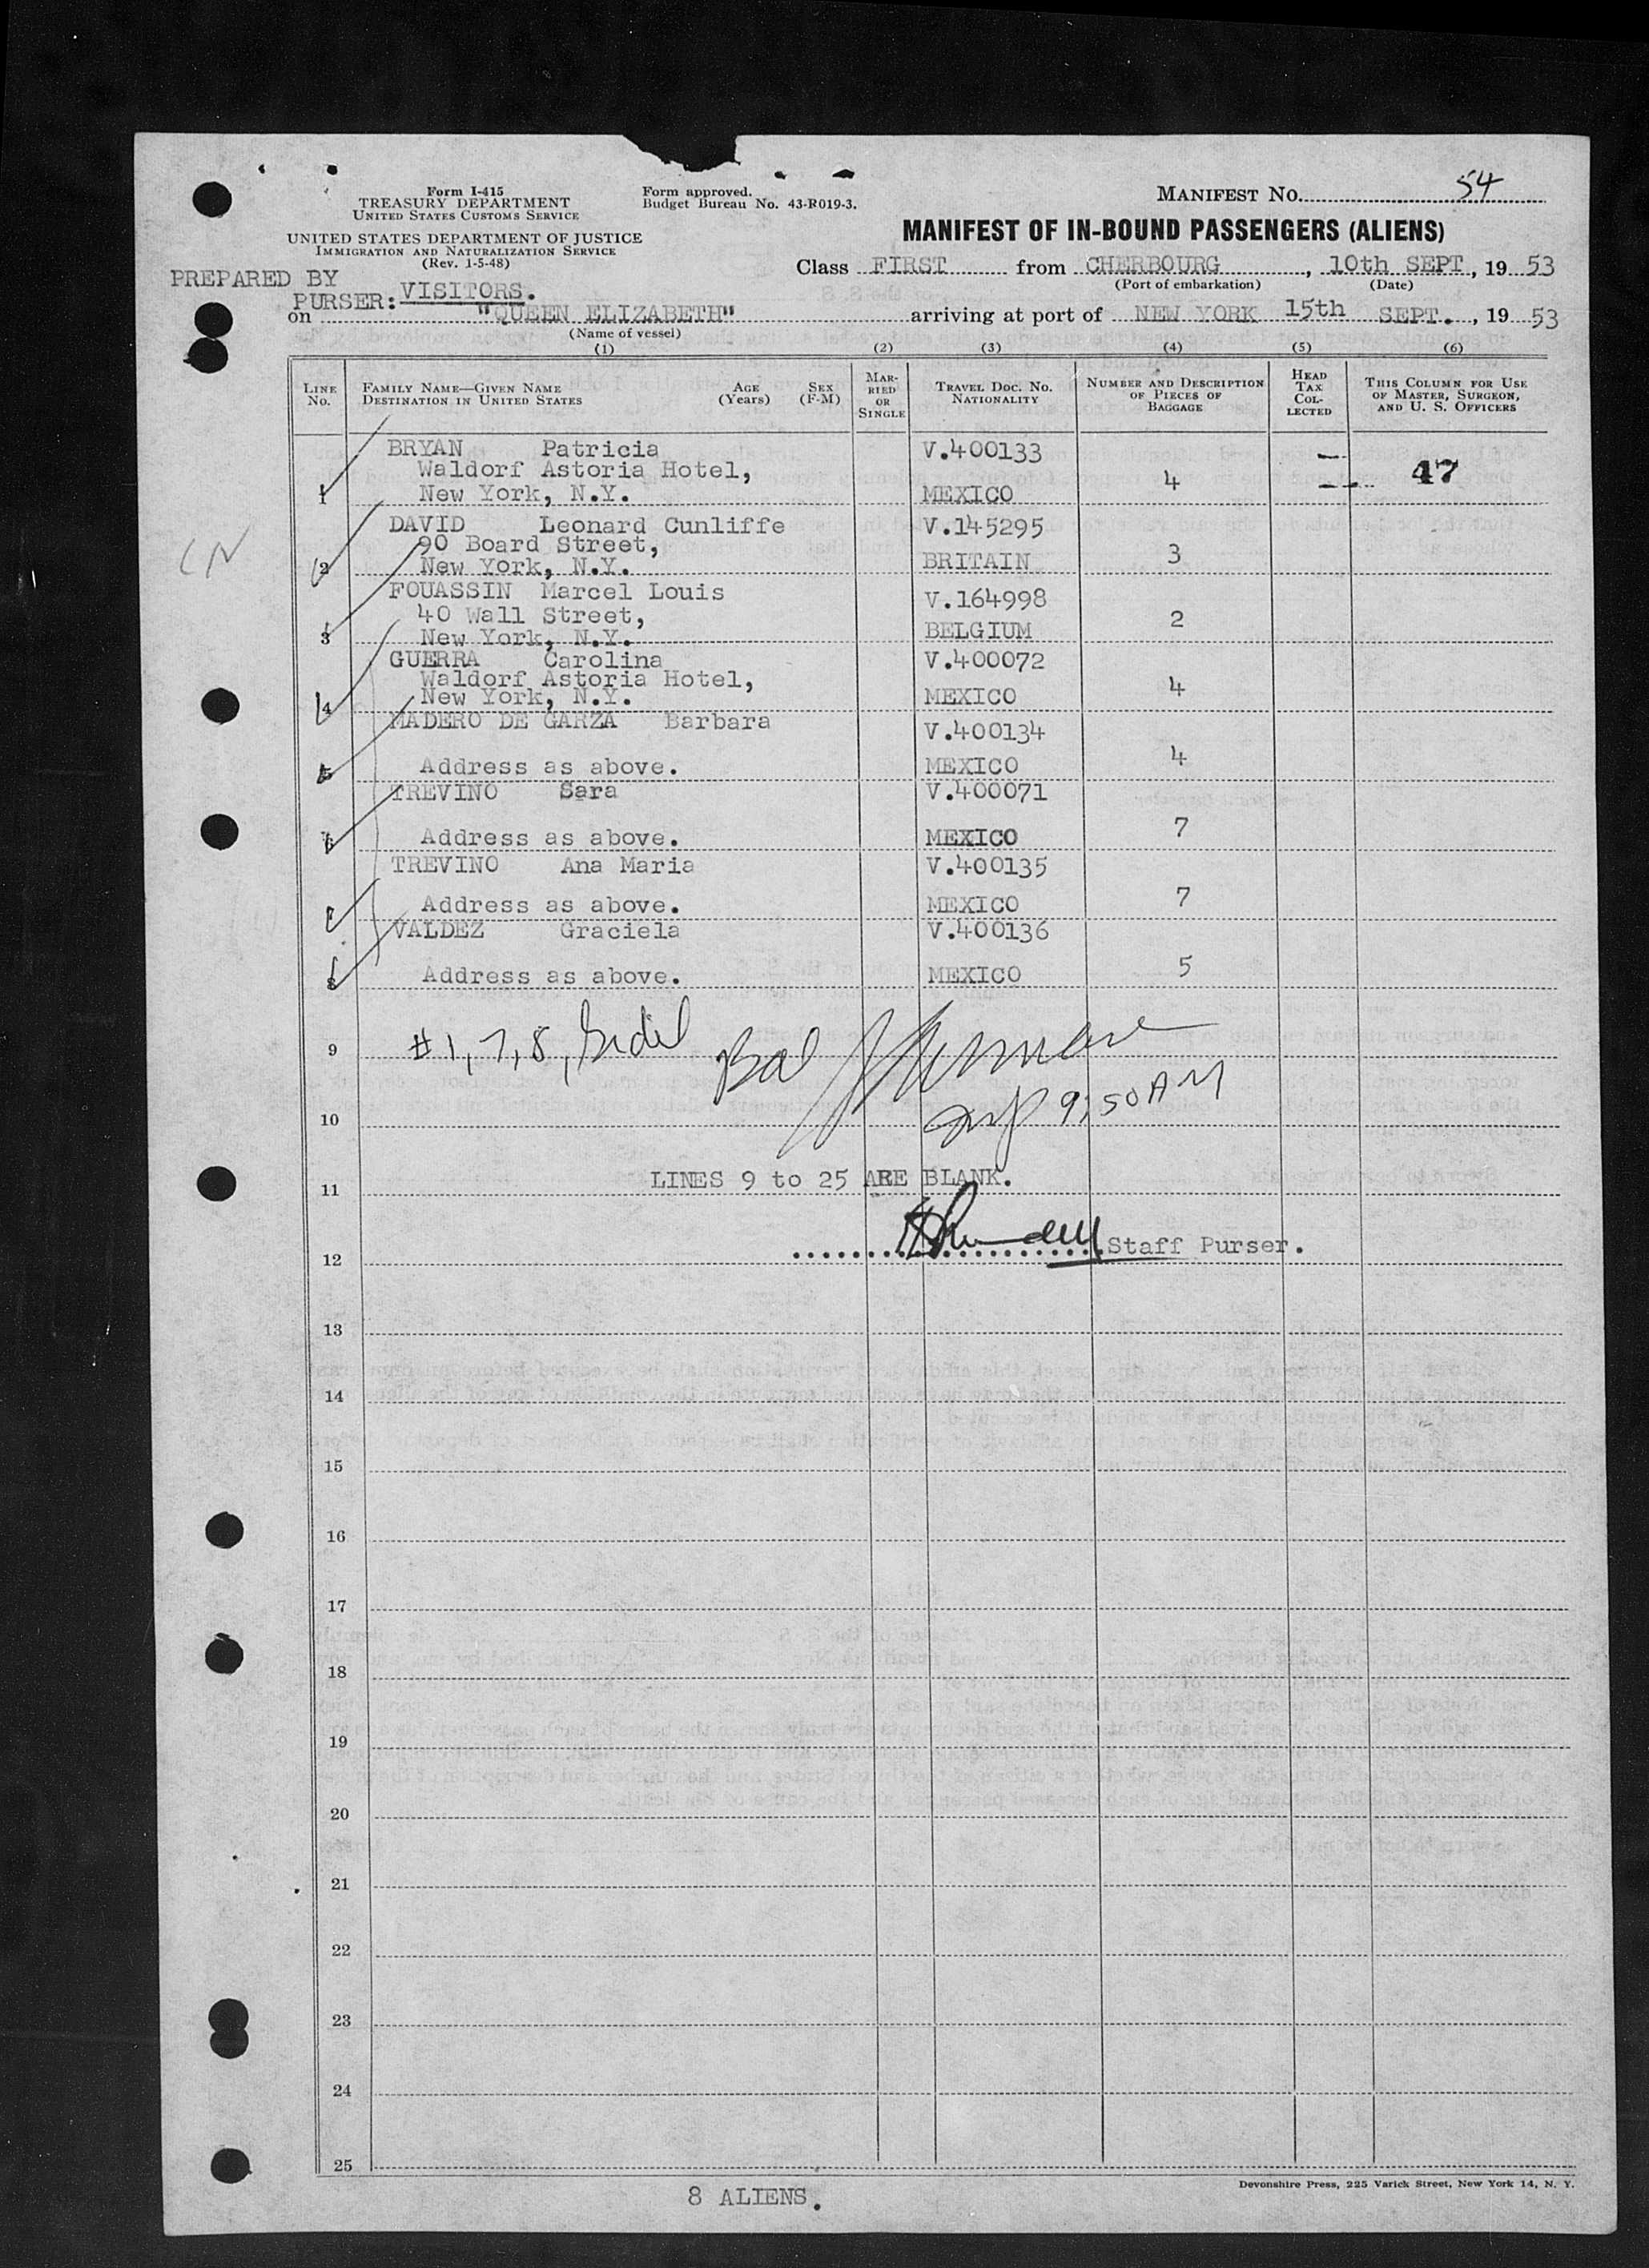 MANIFEST NO. 54
Form I-415
TREASURY DEPARTMENT
UNITED STATES CUSTOMS SERVICE
Form approved.
Budget Bureau No. 43-R019-3.
UNITED STATES DEPARTMENT OF JUSTICE
IMMIGRATION AND NATURALIZATION SERVICE
(Rev. 1-5-48)
MANIFEST OF IN-BOUND PASSENGERS (ALIENS)
Class FIRST from CHERBOURG, 10th SEPT, 1953
(Port of embarkation) (Date)
PREPARED BY
PURSER: VISITORS.
on "QUEEN ELIZABETH" arriving at port of NEW YORK 15th SEPT., 1953
(Name of vessel)
(1) (2) (3) (4) (5) (6)
LINE No. FAMILY NAME—GIVEN NAME DESTINATION IN UNITED STATES AGE (Years) SEX (F-M) MARRIED OR SINGLE TRAVEL DOC. NO. NATIONALITY NUMBER AND DESCRIPTION OF PIECES OF BAGGAGE HEAD TAX COLLECTED THIS COLUMN FOR USE OF MASTER, SURGEON, AND U. S. OFFICERS
BRYAN Patricia V.400133
Waldorf Astoria Hotel, 4 47
1 New York, N.Y. MEXICO
DAVID Leonard Cunliffe V.145295
90 Board Street, 3
2 New York, N.Y. BRITAIN
FOUASSIN Marcel Louis V.164998
40 Wall Street, 2
3 New York, N.Y. BELGIUM
GUERRA Carolina V.400072
Waldorf Astoria Hotel, 4
4 New York, N.Y. MEXICO
MADERO DE GARZA Barbara V.400134
5 Address as above. MEXICO 4
TREVINO Sara V.400071
6 Address as above. MEXICO 7
TREVINO Ana Maria V.400135
7 Address as above. MEXICO 7
VALDEZ Graciela V.400136
8 Address as above. MEXICO 5
9 #1, 7, 8,
10 9:50 AM
LINES 9 to 25 ARE BLANK.
11
12 Staff Purser.
13
14
15
16
17
18
19
20
21
22
23
24
25
Devonshire Press, 225 Varick Street, New York 14, N. Y.
8 ALIENS.